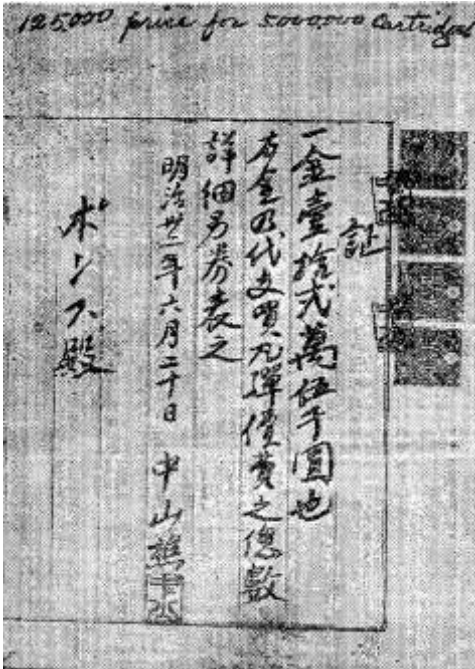 125,000 price for 5000,000 Cartridges
証
一金壹拾弐萬伍千圓也
右金乃代支買凡弾償費之總數
詳細另券表之
明治卅二年六月二十日 中山樵
ポンス殿